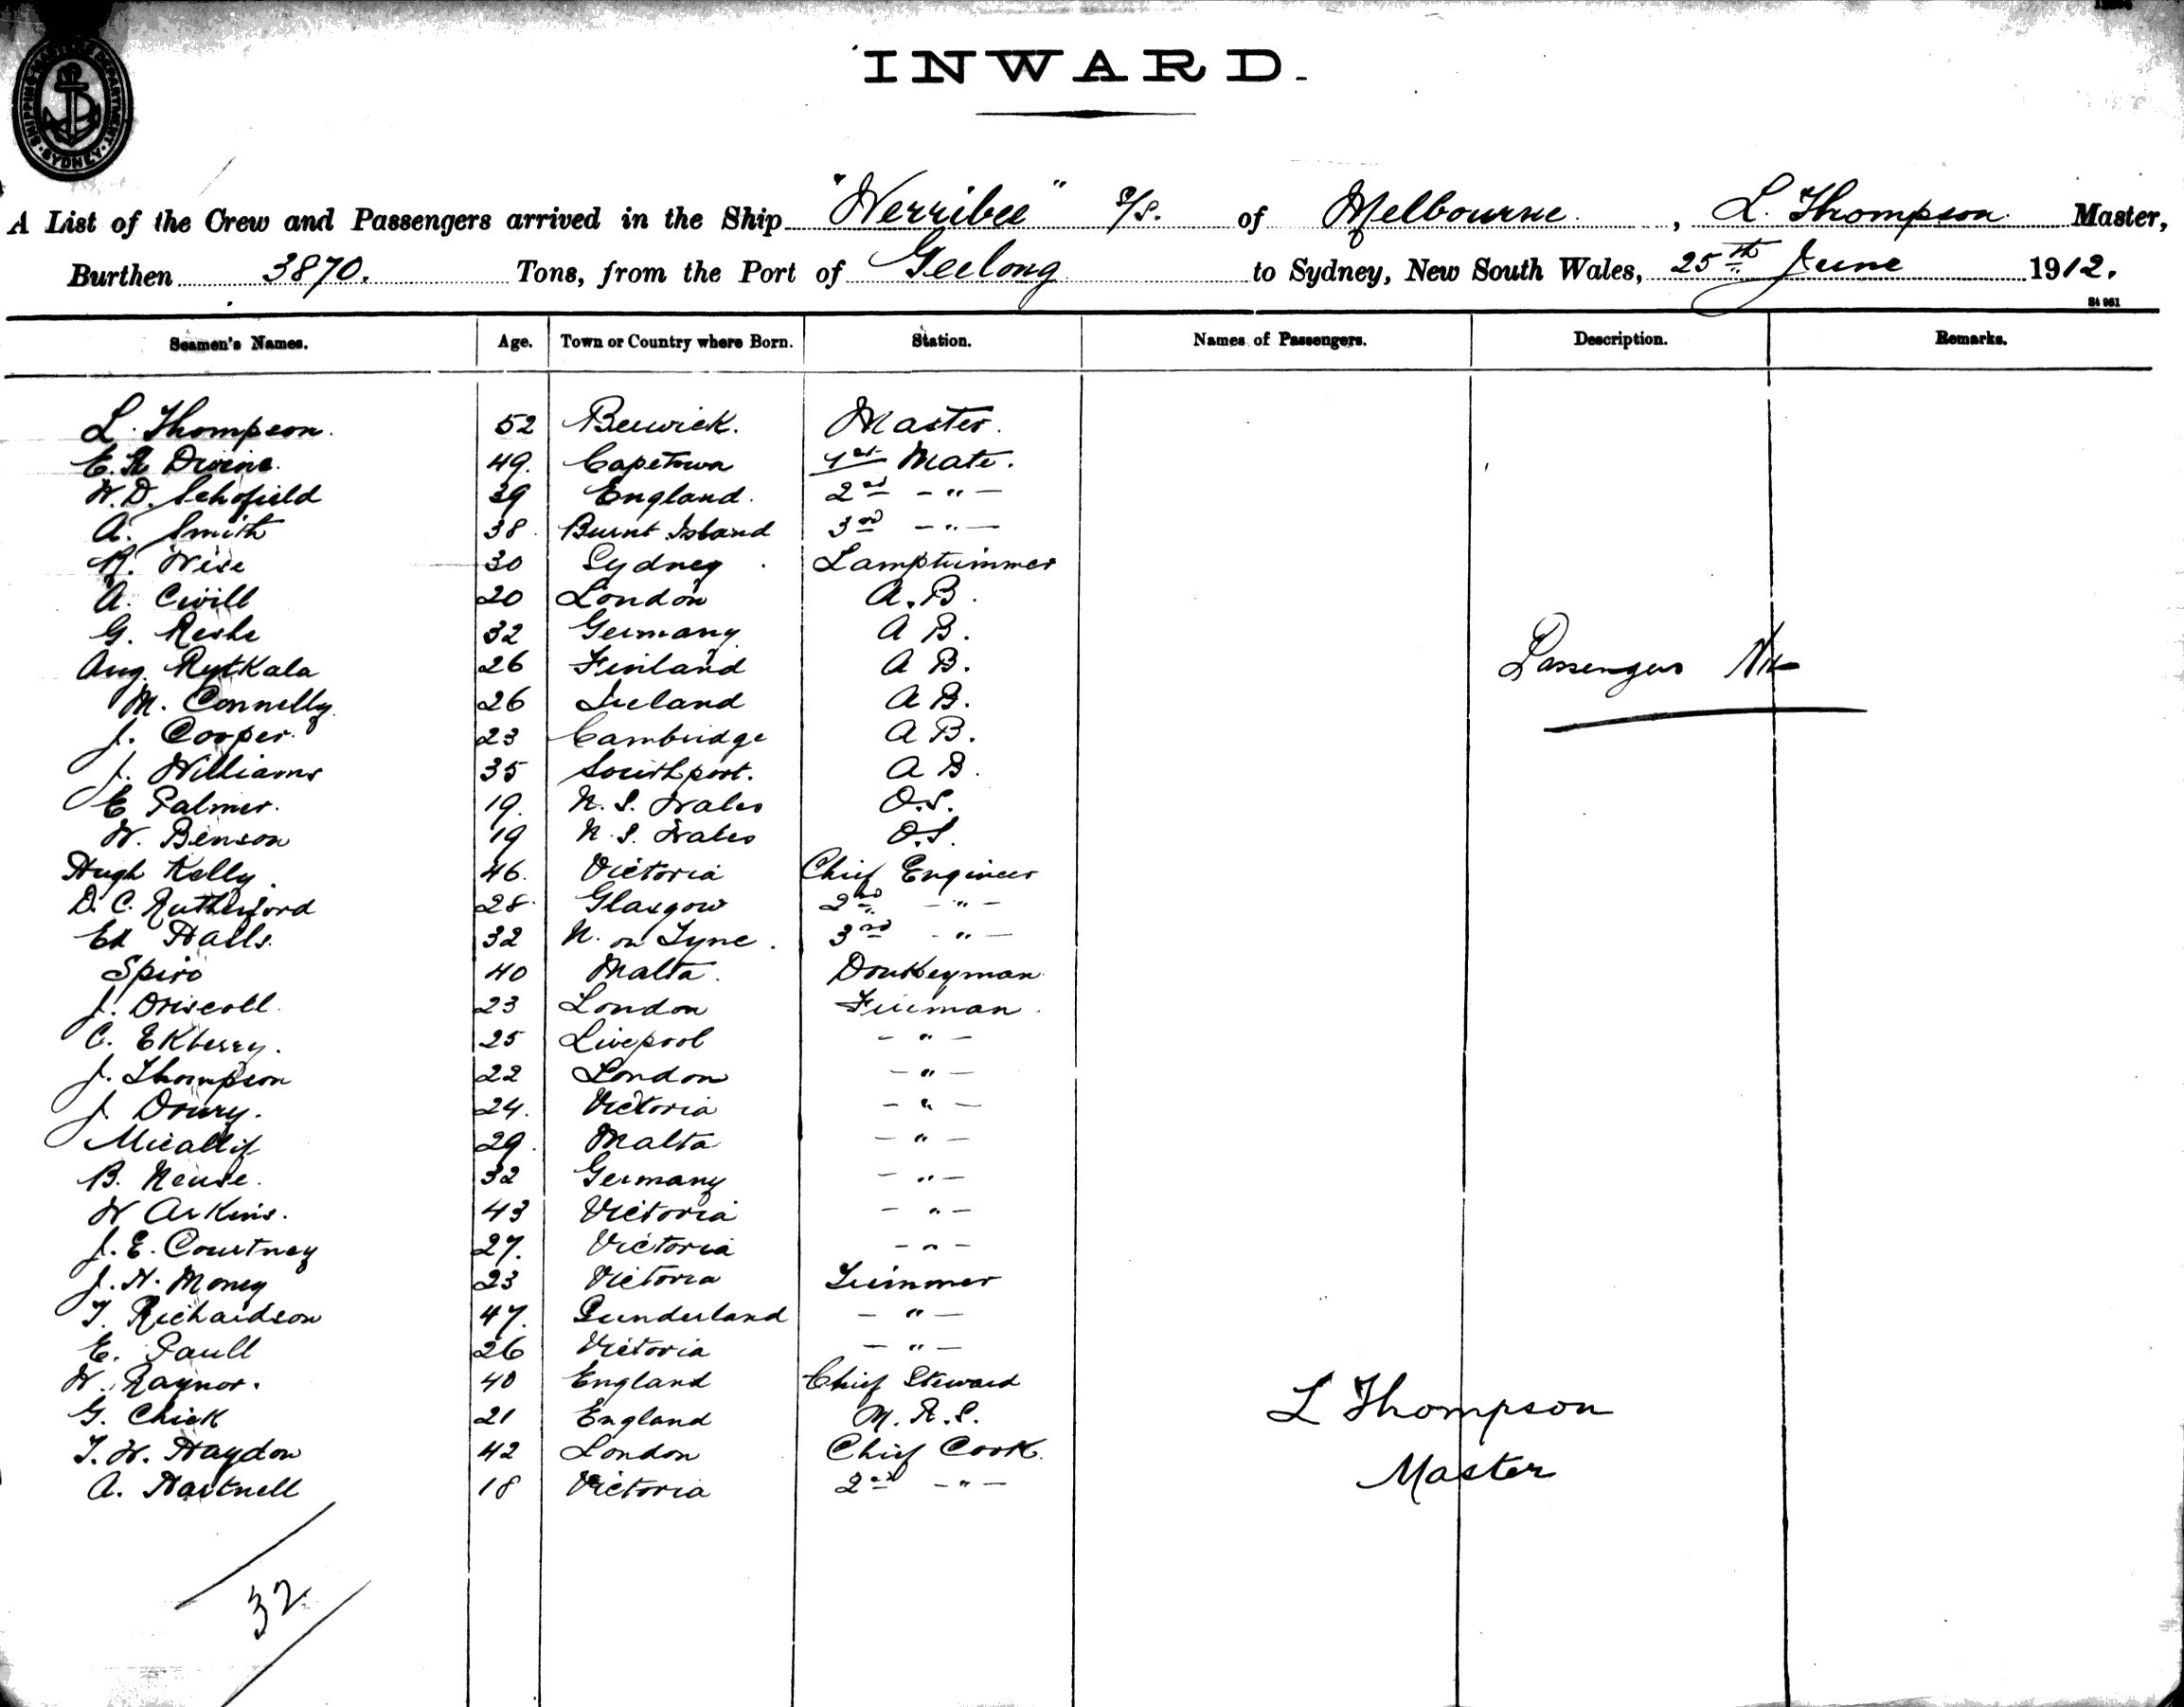 SHIPPING MASTER'S DEPARTMENT
SYDNEY
INWARD.
A List of the Crew and Passengers arrived in the Ship "Werribee" S/S. of Melbourne, L. Thompson Master,
Burthen 3870. Tons, from the Port of Geelong to Sydney, New South Wales, 25th June 1912.
St 961
Seamen's Names. Age. Town or Country where Born. Station. Names of Passengers. Description. Remarks.
L. Thompson. 52 Berwick. Master.
E. R Divine. 49. Capetown 1st Mate.
W. D. Schofield 39 England. 2nd - " -
A. Smith 38. Burnt Island 3rd - " -
R. Wise 30 Sydney Lamptrimmer
A. Civill 20 London A. B.
G. Reshe 32 Germany A B.
Aug. Rytkala 26 Finland A B.
M. Connelly 26 Ireland A B.
Passengers Nil
J. Cooper. 23 Cambridge A B.
J. Williams 35 Southport. A B.
E Palmer. 19. N. S. Wales O.S.
W. Benson 19 N. S. Wales O.S.
Hugh Kelly. 46. Victoria Chief Engineer
D. C. Rutherford 28. Glasgow 2nd - " -
Ed Halls. 32 N. on Tyne. 3rd - " -
Spiro 40 Malta. Donkeyman
J. Driscoll. 23 London Fireman.
C. Ekberry. 25 Livepool - " -
J. Thompson 22 London - " -
J. Doury. 24. Victoria - " -
Micallif 29. Malta - " -
B. Neuse. 32 Germany - " -
W Arkins. 43 Victoria - " -
J. E. Courtney 27. Victoria - " -
J. H. Money 23 Victoria Trimmer
T. Richardson 47. Sunderland - " -
E. Paull 26 Victoria - " -
W. Raynor. 40 England Chief Steward
G. Chick 21 England M. R. S.
L Thompson
T. W. Haydon 42 London Chief Cook.
Master
A. Hartnell 18 Victoria 2nd - " -
32